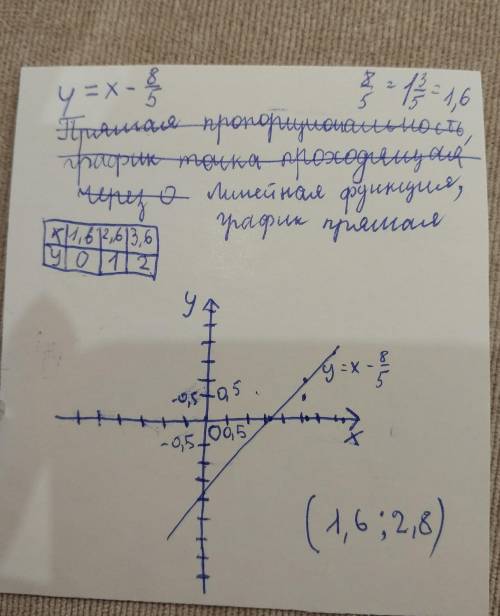 y = x - 8/5
8/5 = 1 3/5 = 1,6
Прямая пропорциональность,
график точка проходящая
через 0 Линейная функция,
график прямая
x 1,6 2,6 3,6
y 0 1 2
y
y = x - 8/5
-0,5 0,5
0 0,5 x
-0,5
(1,6 ; 2,8)